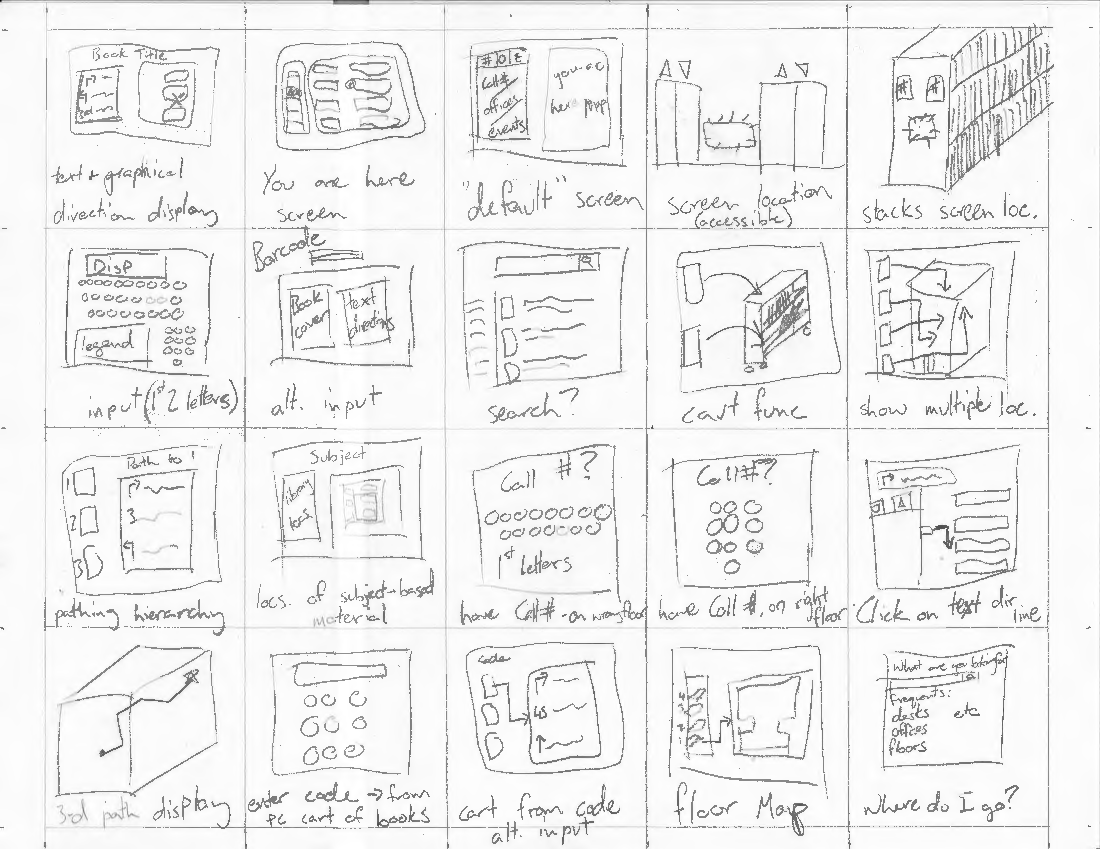 Book Title
3rd
text + graphical
direction display
You are here
screen
Call #
offices
events
you are
here map
"default" screen
screen location
(accessible)
# #
stacks screen loc.
Disp
legend
input (1st 2 letters)
Barcode
Book
cover
text
directions
alt. input
search?
cart func
show multiple loc.
Path to 1
1
2
3
pathing hierarchy
Subject
library
locs
locs. of subject-based
material
Call #?
1st letters
have Call # - on wrong floor
Call #?
have Call #, on right
floor
Click on text dir
line
3-d path display
enter code → from
pc cart of books
code
cart from code
alt. input
floor Map
What are you looking for
frequents:
desks etc
offices
floors
where do I go?